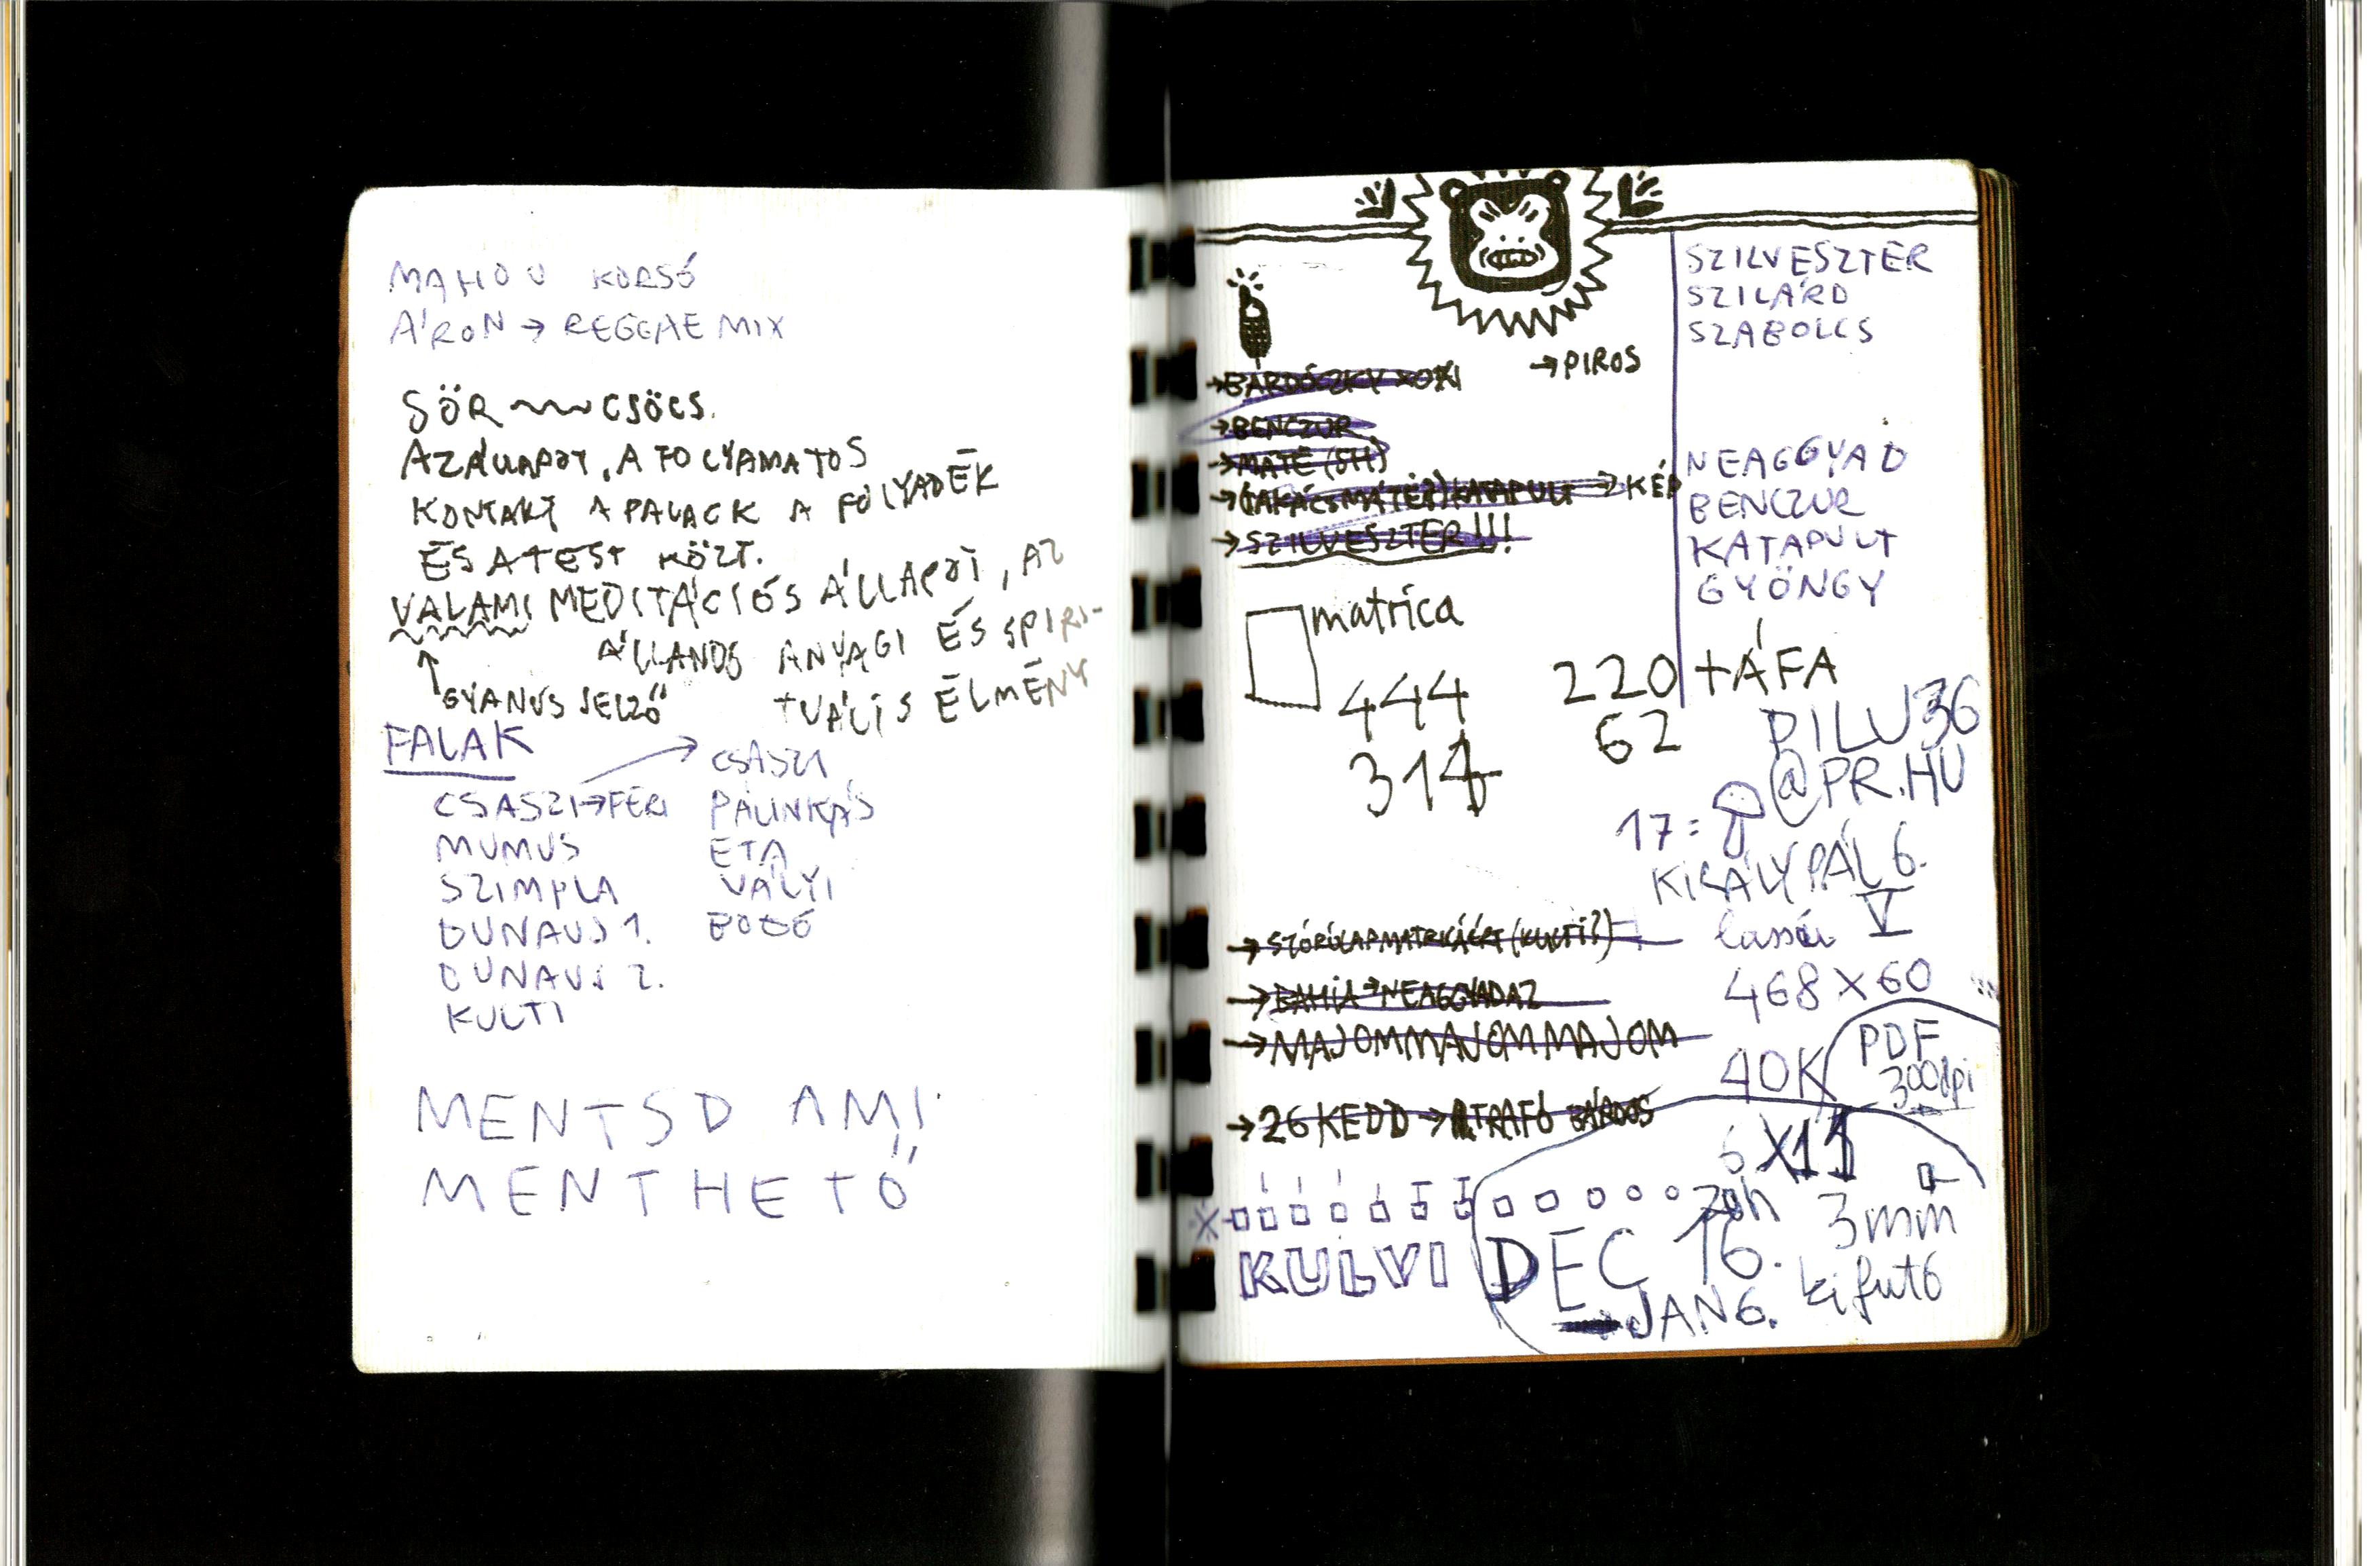 MAHOU KORSÓ
ÁRON → REGGAE MIX
SÖR CSÖCS.
AZ ÁLLAPOT, A FOLYAMATOS
KONTAKT A PALACK A FOLYADÉK
ÉS A TEST KÖZT.
VALAMI MEDITÁCIÓS ÁLLAPOT, AZ
ÁLLANDÓ ANYAGI ÉS SPIRI-
TUÁLIS ÉLMÉNY
↑ GYANÚS JELZŐ
FALAK
CSASZI → FERI
MUMUS
SZIMPLA
DUNAUJ 1.
DUNAUJ 2.
KULTI
CSASZI
PÁLINKÁS
ETA
VÁLYI
MENTSD AMI
MENTHETŐ
→ PIROS
→ BARDÓCZKY
→ BENCZUR
→ MATÉ
→ (TAKÁCS MÁTÉ?) KATAPULT → KÉP
→ SZILVESZTER!!!
SZILVESZTER
SZILÁRD
SZABOLCS
NEAGGYAD
BENCZUR
KATAPULT
GYÖNGY
matrica
444
314
220 + ÁFA
62
PILU36
@PR.HU
17 =
KIRÁLY PÁL 6.
V
→ SZÓRÓLAP MATRICÁÉRT (KULTI?)
468 X 60
→ BAHIA → NEAGGYADAZ
→ MAJOMMAJOMMAJOM
40K
PDF
300dpi
→ 26 KEDD → TRAFÓ BÁRDOS
6 X 11
20h
3mm
kifutó
KULVI
DEC 16.
→ JAN 6.